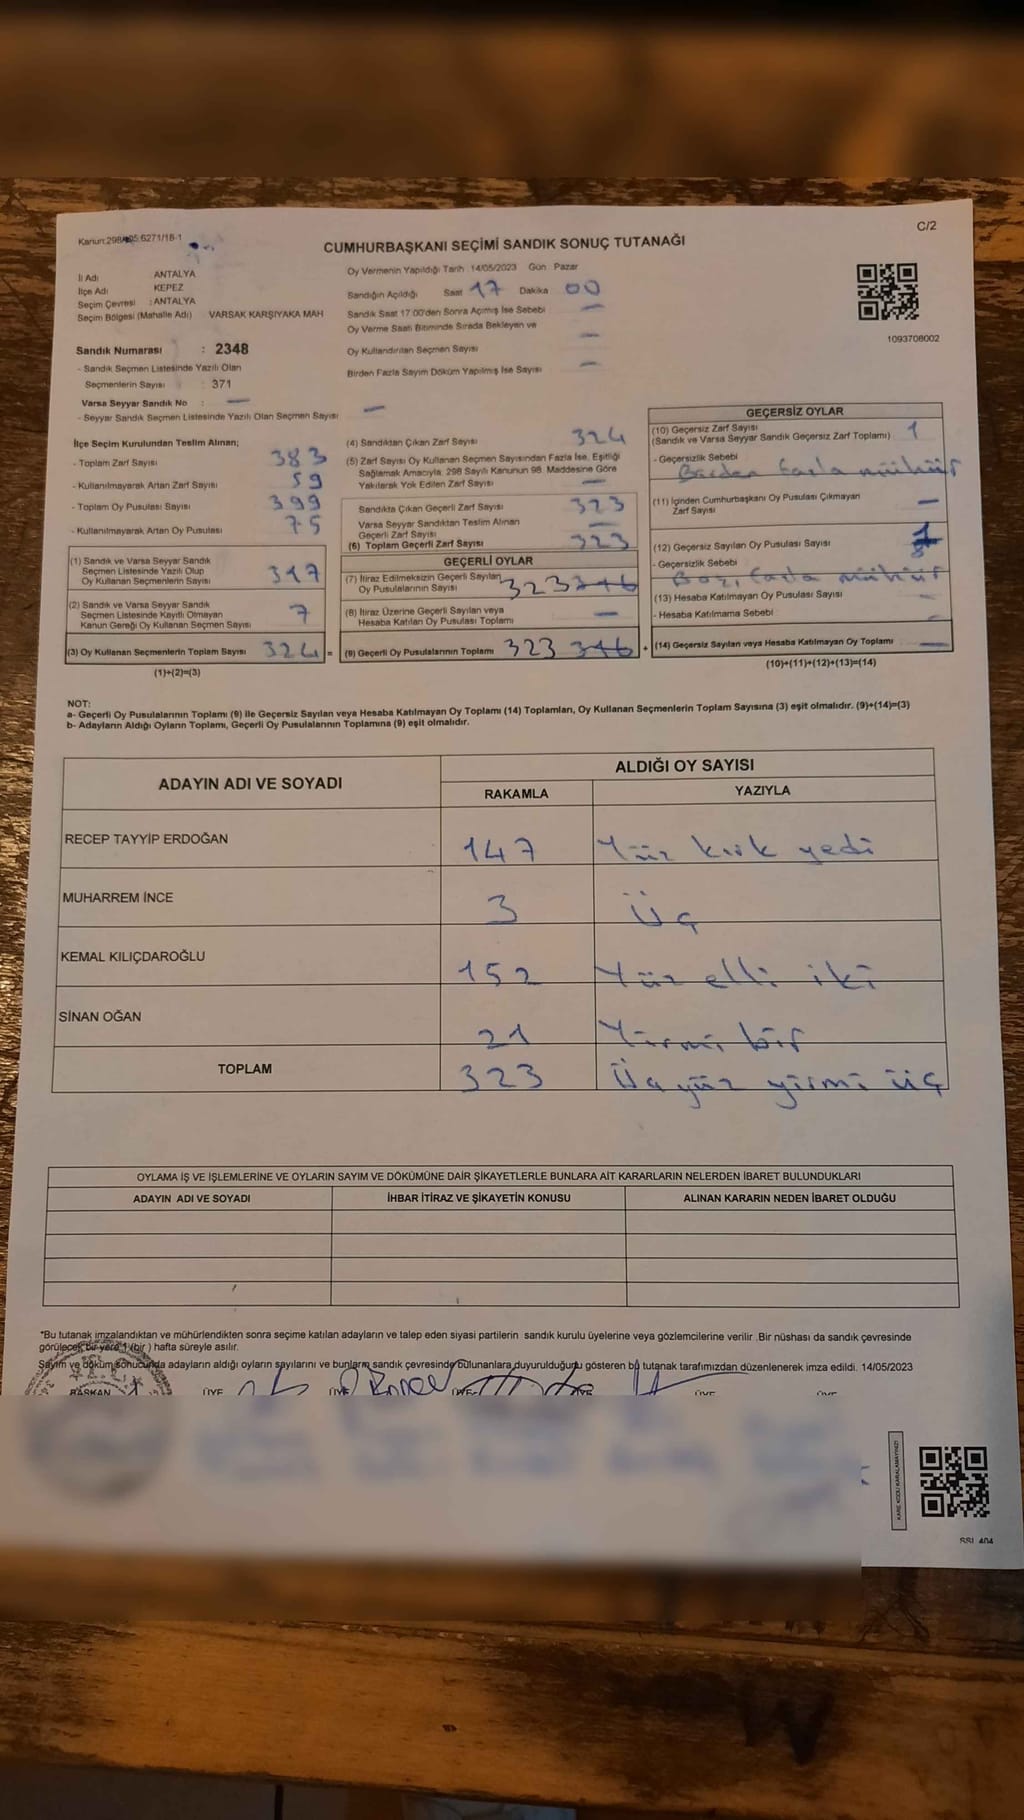 Kanun:298/195:6271/18-1
C/2
CUMHURBAŞKANI SEÇİMİ SANDIK SONUÇ TUTANAĞI
İl Adı ANTALYA
İlçe Adı KEPEZ
Seçim Çevresi : ANTALYA
Seçim Bölgesi (Mahalle Adı) VARSAK KARŞIYAKA MAH
Sandık Numarası : 2348
- Sandık Seçmen Listesinde Yazılı Olan
Seçmenlerin Sayısı : 371
Varsa Seyyar Sandık No : —
- Seyyar Sandık Seçmen Listesinde Yazılı Olan Seçmen Sayısı —
Oy Vermenin Yapıldığı Tarih :14/05/2023 Gün Pazar
Sandığın Açıldığı Saat 17 Dakika 00
Sandık Saat 17:00'den Sonra Açılmış İse Sebebi —
Oy Verme Saati Bitiminde Sırada Bekleyen ve
Oy Kullandırılan Seçmen Sayısı —
Birden Fazla Sayım Döküm Yapılmış İse Sayısı —
1093708002
İlçe Seçim Kurulundan Teslim Alınan;
- Toplam Zarf Sayısı 383
- Kullanılmayarak Artan Zarf Sayısı 59
- Toplam Oy Pusulası Sayısı 399
- Kullanılmayarak Artan Oy Pusulası 75
(1) Sandık ve Varsa Seyyar Sandık
Seçmen Listesinde Yazılı Olup
Oy Kullanan Seçmenlerin Sayısı 317
(2) Sandık ve Varsa Seyyar Sandık
Seçmen Listesinde Kayıtlı Olmayan
Kanun Gereği Oy Kullanan Seçmen Sayısı 7
(3) Oy Kullanan Seçmenlerin Toplam Sayısı 324 =
(1)+(2)=(3)
(4) Sandıktan Çıkan Zarf Sayısı 324
(5) Zarf Sayısı Oy Kullanan Seçmen Sayısından Fazla İse, Eşitliği
Sağlamak Amacıyla, 298 Sayılı Kanunun 98. Maddesine Göre
Yakılarak Yok Edilen Zarf Sayısı —
Sandıkta Çıkan Geçerli Zarf Sayısı 323
Varsa Seyyar Sandıktan Teslim Alınan
Geçerli Zarf Sayısı —
(6) Toplam Geçerli Zarf Sayısı 323
GEÇERLİ OYLAR
(7) İtiraz Edilmeksizin Geçerli Sayılan
Oy Pusulalarının Sayısı 323
(8) İtiraz Üzerine Geçerli Sayılan veya
Hesaba Katılan Oy Pusulası Toplamı —
(9) Geçerli Oy Pusulalarının Toplamı 323 +
GEÇERSİZ OYLAR
(10) Geçersiz Zarf Sayısı 1
(Sandık ve Varsa Seyyar Sandık Geçersiz Zarf Toplamı)
- Geçersizlik Sebebi
Birden fazla mühür
(11) İçinden Cumhurbaşkanı Oy Pusulası Çıkmayan
Zarf Sayısı —
(12) Geçersiz Sayılan Oy Pusulası Sayısı
- Geçersizlik Sebebi
fazla mühür
(13) Hesaba Katılmayan Oy Pusulası Sayısı —
- Hesaba Katılmama Sebebi —
(14) Geçersiz Sayılan veya Hesaba Katılmayan Oy Toplamı —
(10)+(11)+(12)+(13)=(14)
NOT:
a- Geçerli Oy Pusulalarının Toplamı (9) ile Geçersiz Sayılan veya Hesaba Katılmayan Oy Toplamı (14) Toplamları, Oy Kullanan Seçmenlerin Toplam Sayısına (3) eşit olmalıdır. (9)+(14)=(3)
b- Adayların Aldığı Oyların Toplamı, Geçerli Oy Pusulalarının Toplamına (9) eşit olmalıdır.
ADAYIN ADI VE SOYADI ALDIĞI OY SAYISI
RAKAMLA YAZIYLA
RECEP TAYYİP ERDOĞAN 147 Yüz kırk yedi
MUHARREM İNCE 3 Üç
KEMAL KILIÇDAROĞLU 152 Yüz elli iki
SİNAN OĞAN 21 Yirmi bir
TOPLAM 323 Üç yüz yirmi üç
OYLAMA İŞ VE İŞLEMLERİNE VE OYLARIN SAYIM VE DÖKÜMÜNE DAİR ŞİKAYETLERLE BUNLARA AİT KARARLARIN NELERDEN İBARET BULUNDUKLARI
ADAYIN ADI VE SOYADI İHBAR İTİRAZ VE ŞİKAYETİN KONUSU ALINAN KARARIN NEDEN İBARET OLDUĞU
*Bu tutanak imzalandıktan ve mühürlendikten sonra seçime katılan adayların ve talep eden siyasi partilerin sandık kurulu üyelerine veya gözlemcilerine verilir .Bir nüshası da sandık çevresinde
görülecek bir yere 1 (bir ) hafta süreyle asılır.
Sayım ve döküm sonucunda adayların aldığı oyların sayılarını ve bunların sandık çevresinde bulunanlara duyurulduğunu gösteren bu tutanak tarafımızdan düzenlenerek imza edildi. 14/05/2023
BAŞKAN ÜYE ÜYE ÜYE ÜYE ÜYE ÜYE
KARE KODU KARALAMAYINIZ!
SSI 404